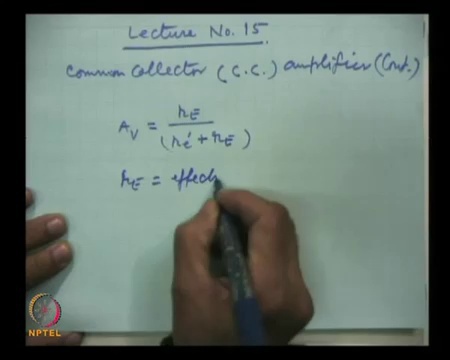 Lecture No. 15
Common Collector (C.C.) amplifier (Cont.)
A_V = r_E / (r'_e + r_E)
r_E = effect
NPTEL